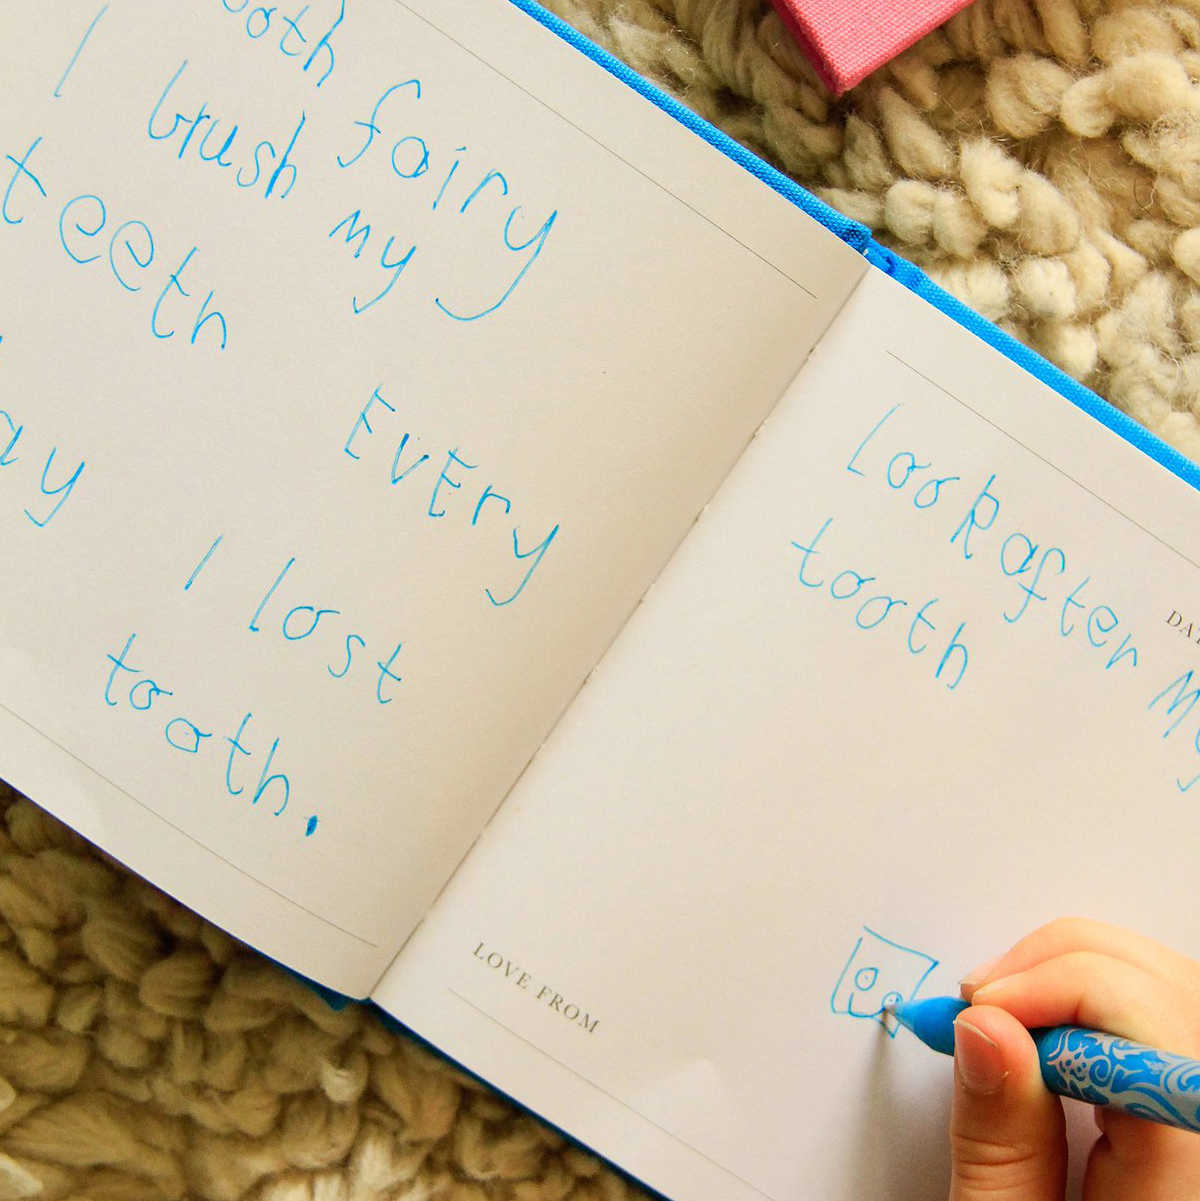 ooth fairy
I brush my
teeth EvEry
ay I lost
tooth.
Look after my
tooth
DAT
LOVE FROM